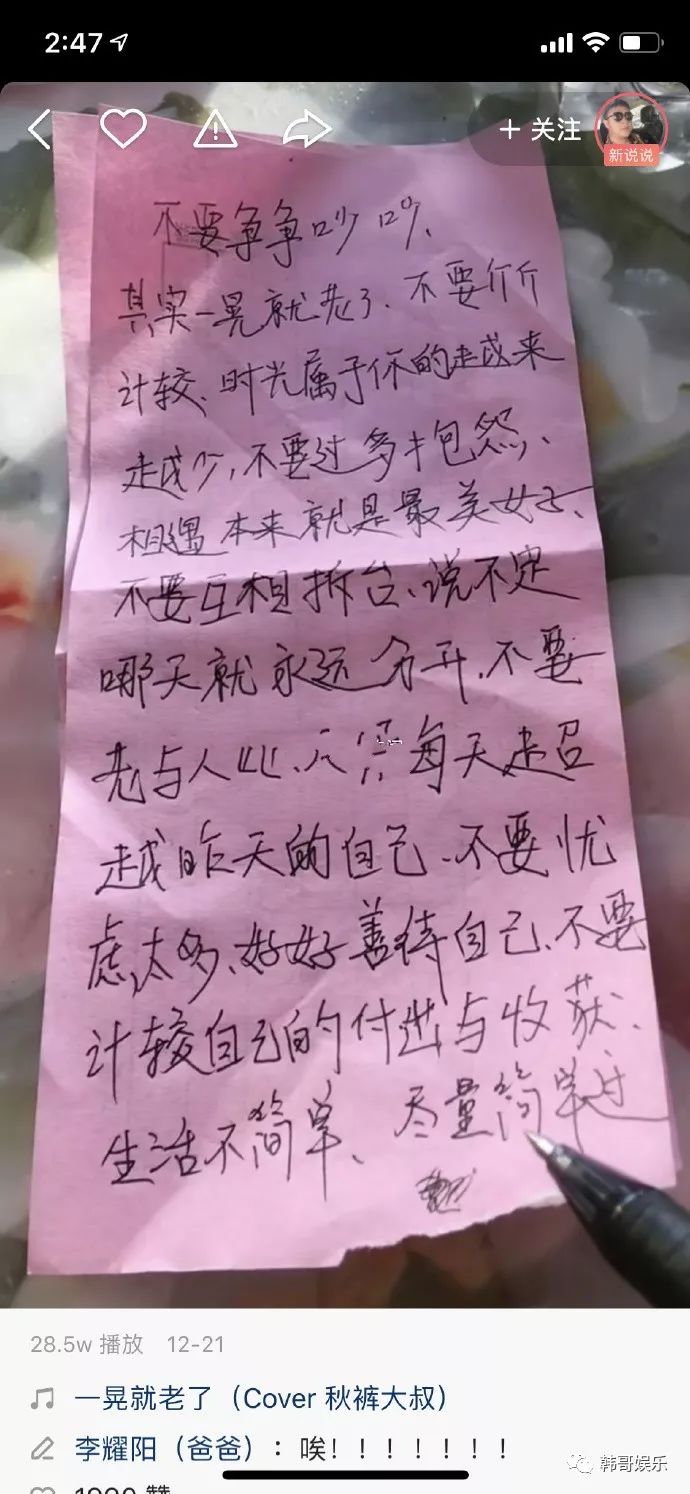 2:47
+ 关注
新说说
不要争争吵吵、
其实一晃就老了、不要斤斤
计较、时光属于你的越来
越少,不要过多抱怨、
相遇本来就是最美好、
不要互相拆台、说不定
哪天就永远分开、不要
老与人比、只 每天超
越昨天的自己、不要忧
虑太多、好好善待自己、不要
计较自己的付出与收获、
生活不简单、尽量简单过
28.5w 播放 12-21
一晃就老了（Cover 秋裤大叔）
李耀阳（爸爸）：唉！！！！！！！
韩哥娱乐
1000 赞